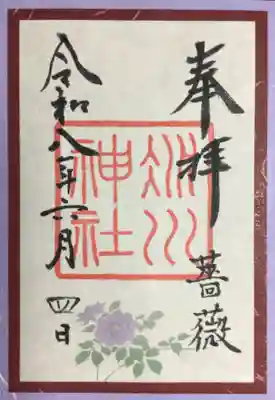 奉拝 薔薇
氷川
神社
令和八年六月四日